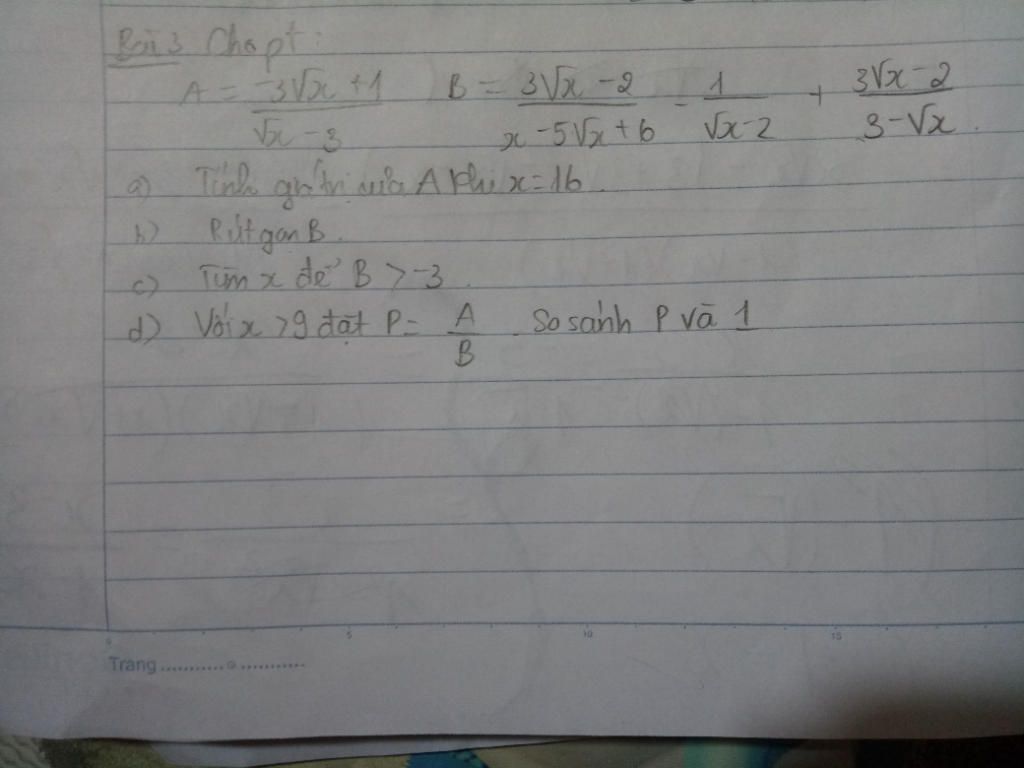 Bài 3 Cho pt:
A = \frac{-3\sqrt{x}+1}{\sqrt{x}-3} B = \frac{3\sqrt{x}-2}{x-5\sqrt{x}+6} - \frac{1}{\sqrt{x}-2} + \frac{3\sqrt{x}-2}{3-\sqrt{x}}.
a) Tính giá trị của A khi x=16.
b) Rút gọn B.
c) Tìm x để B > -3.
d) Với x >9 đặt P = \frac{A}{B}. So sánh P và 1
5 10 15
Trang